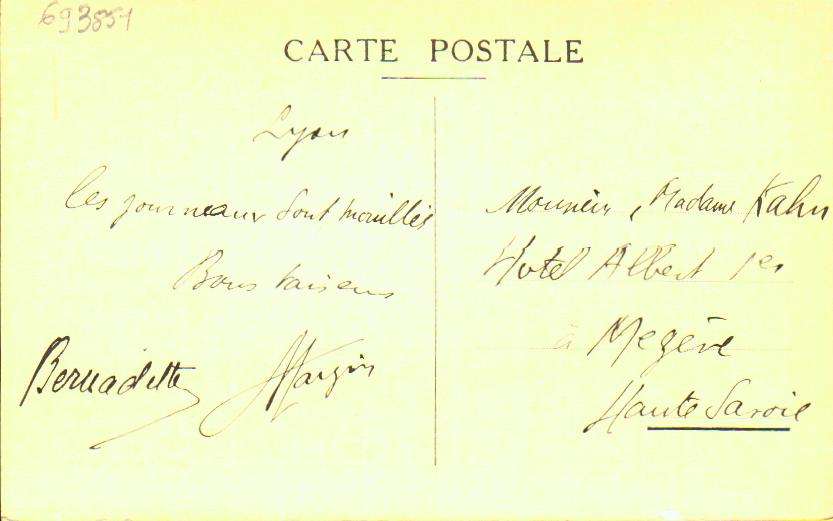 693851
CARTE POSTALE
Lyon
les journeaux sont mouillés
Bons baisers
Bernadette
Monsieur, Madame Kahn
Hotel Albert 1er
à Megève
Haute Savoie